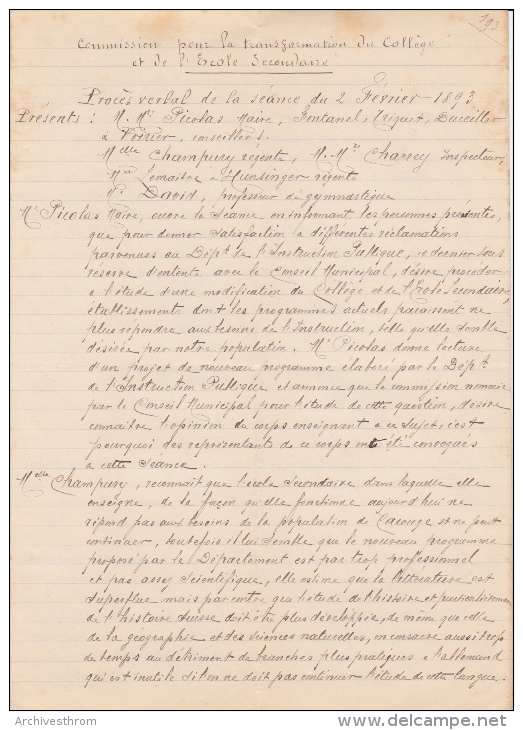 193
Commission pour la transformation du Collège
et de l'Ecole Secondaire
Procès verbal de la séance du 2 Février 1893
Présents : M. Mrs Picolas Maire, Fontanel, Triquet,
& Voirier, conseillers.
Melle Champury régente, M. Mrs Charrey Inspecteur,
Lemaitre & Hunsinger régents
Mr David, professeur de gymnastique
Mr Picolas Maire, ouvre la Séance en informant les personnes présentes,
que pour donner satisfaction à différentes réclamations
parvenues au Dépt. de l'Instruction Publique, ce dernier sous
réserve d'entente avec le Conseil Municipal, désire procéder
à l'étude d'une modification du Collège et de l'Ecole Secondaire,
établissements dont les programmes actuels paraissent ne
plus répondre aux besoins de l'Instruction, telle qu'elle semble
désirée par notre population. Mr Picolas donne lecture
d'un projet de nouveau programme élaboré par le Dépt.
de l'Instruction Publique et annonce que la commission nommée
par le Conseil Municipal pour l'étude de cette question, désire
connaître l'opinion du corps enseignant à ce sujet, c'est
pourquoi des représentants de ce corps ont été convoqués
à cette Séance.
Melle Champury, reconnait que l'école Secondaire dans laquelle elle
enseigne, de la façon qu'elle fonctionne aujourd'hui ne
répond pas aux besoins de la population de Carouge et ne peut
continuer, toutefois il lui semble que le nouveau programme
proposé par le Département est par trop professionnel
et pas assez Scientifique, elle estime que la littérature est
superflue mais par contre que l'étude de l'histoire et particulièrement
de l'histoire Suisse doit être plus développée, de même que celle
de la géographie et des sciences naturelles, on consacre aussi trop
de temps au détriment de branches plus pratiques à l'allemand
qui est inutile si l'on ne doit pas continuer l'étude de cette langue.
Archivesthrom
www.delcampe.net